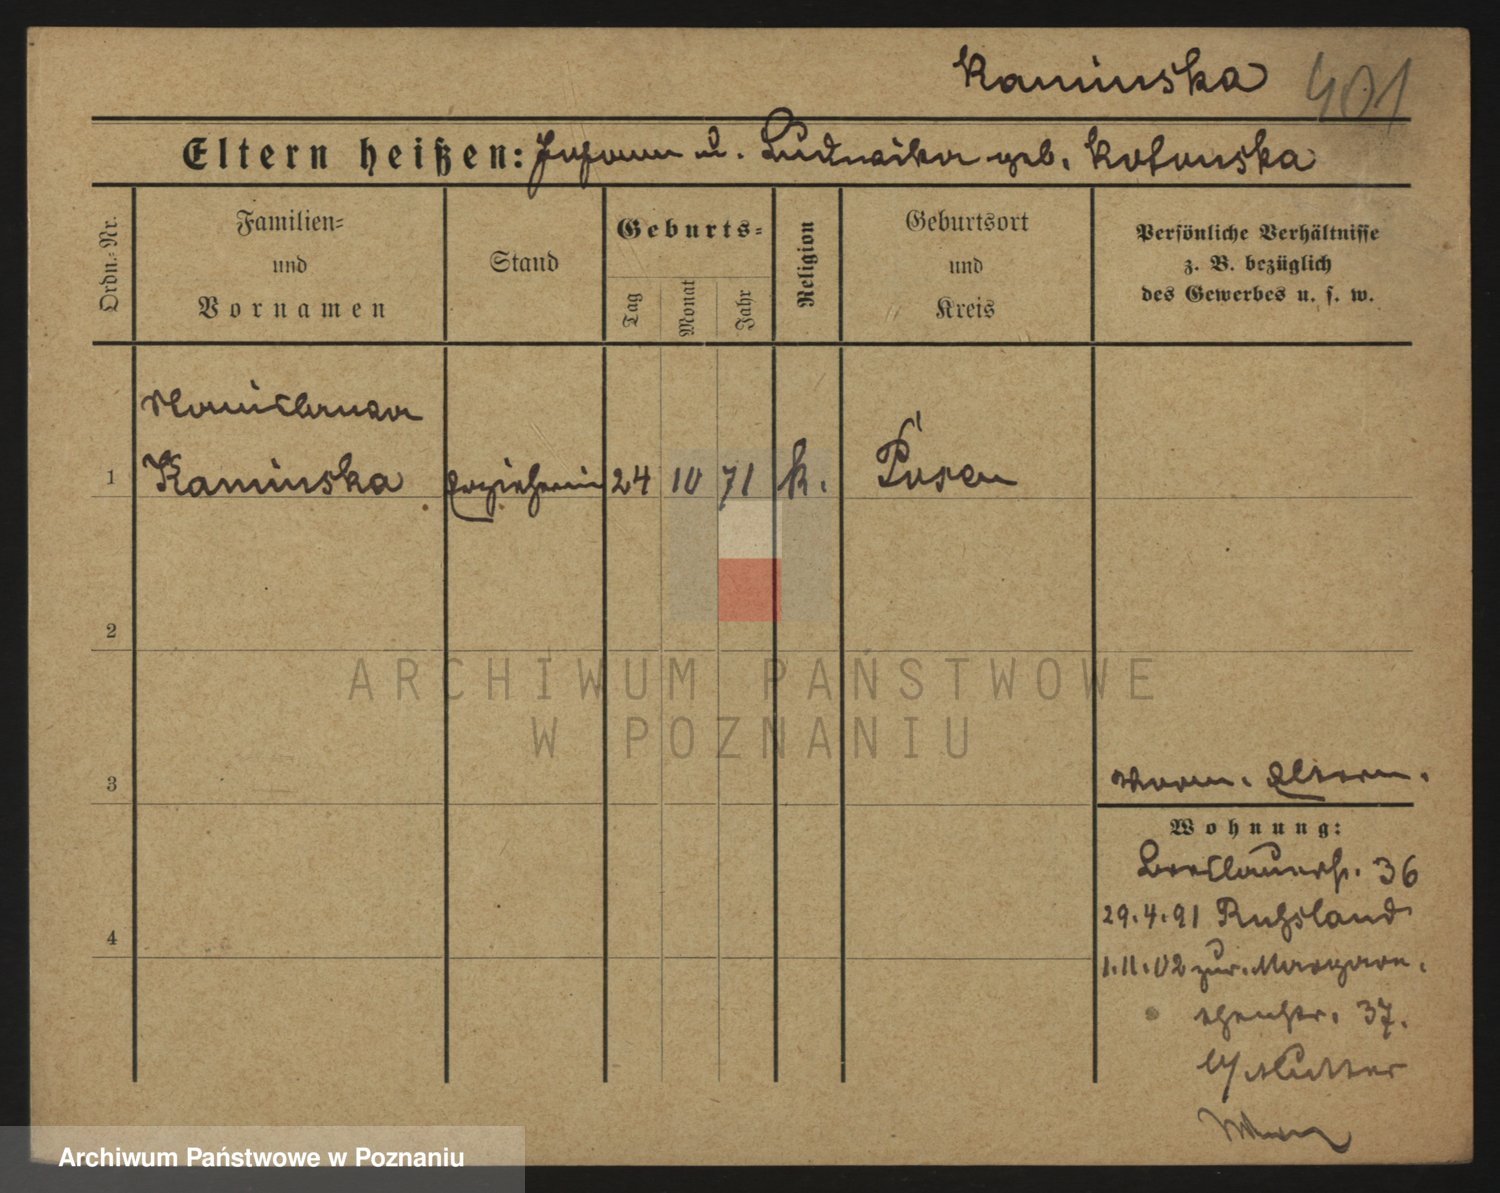 Kaminska 401
Eltern heißen: Johann u. Ludwika geb. Kotonska
Ordn.-Nr.
Familien-
und
Vornamen
Stand
Geburts-
Tag
Monat
Jahr
Religion
Geburtsort
und
Kreis
Persönliche Verhältnisse
z. B. bezüglich
des Gewerbes u. s. w.
Stanislawa
1 Kaminska Erzieherin 24 10 71 k. Posen
2
3
Eltern.
Wohnung:
Breslauerstr. 36
29.4.91 Rußland
1.11.02 zur. Margare-
thenstr. 37.
b/Mutter
4
ARCHIWUM PAŃSTWOWE
W POZNANIU
Archiwum Państwowe w Poznaniu